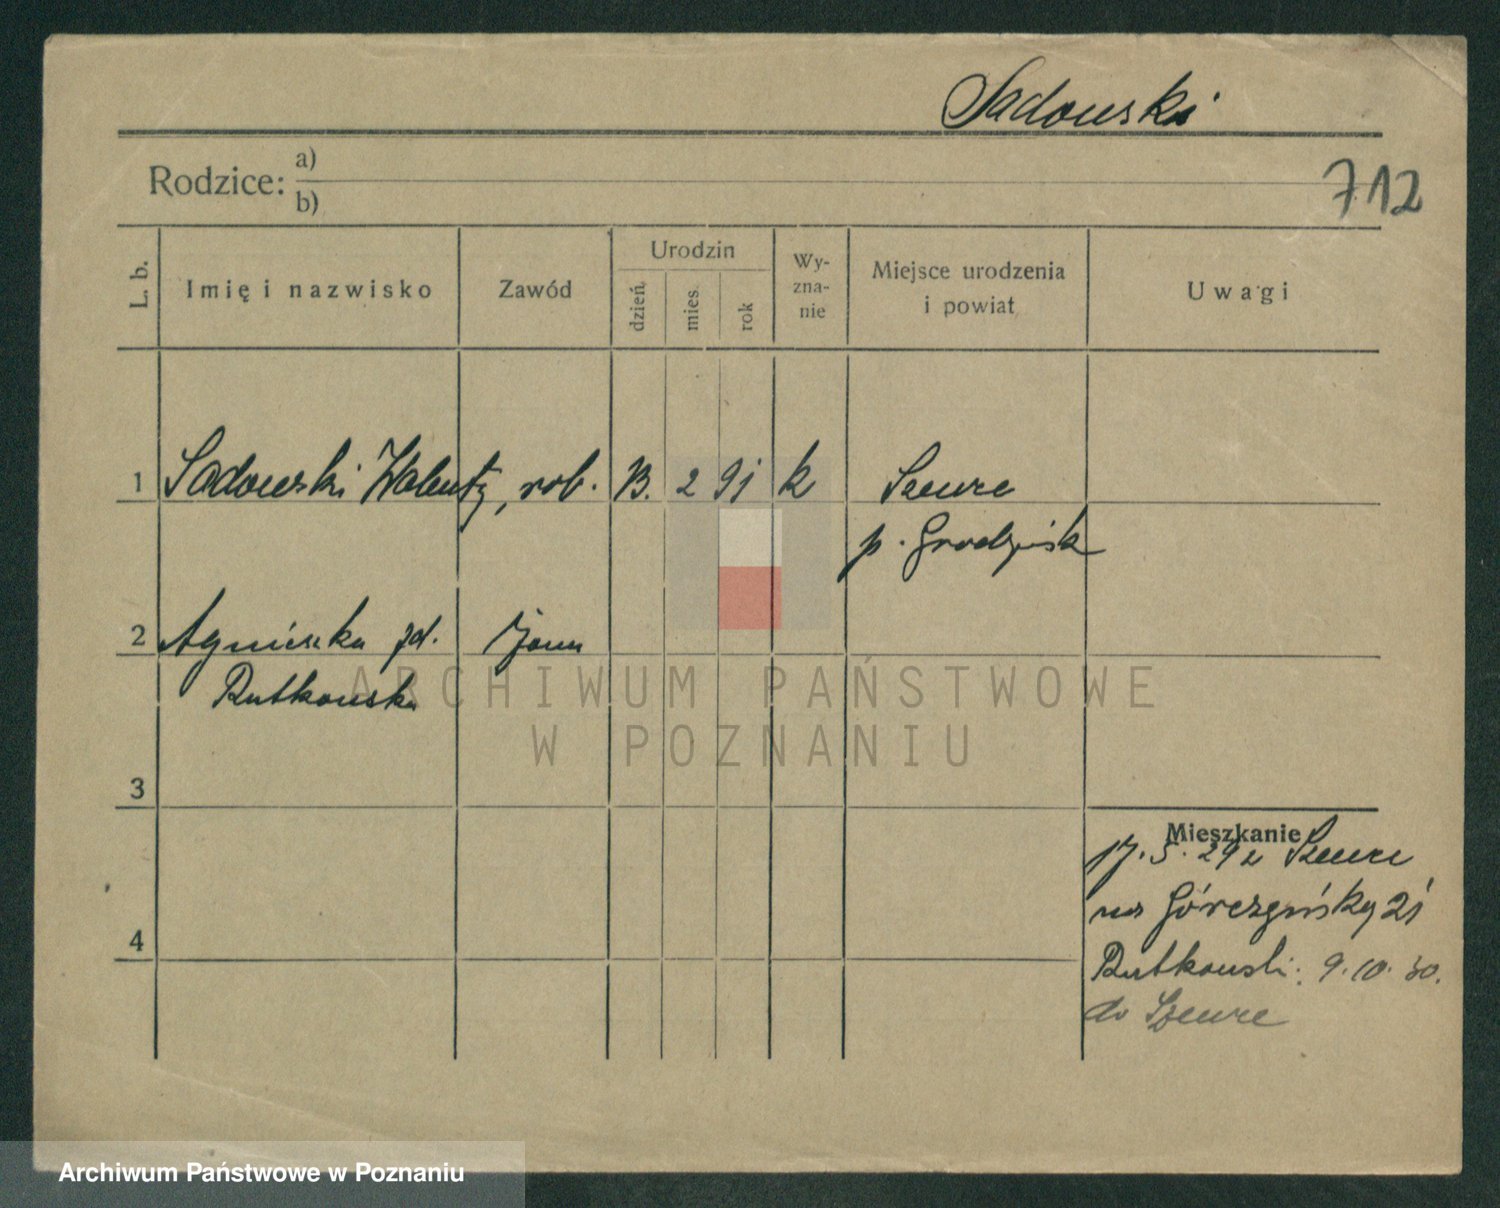 Sadowski
Rodzice: a)
b)
712
L. b.
Imię i nazwisko
Zawód
Urodzin
dzień
mies.
rok
Wy-
zna-
nie
Miejsce urodzenia
i powiat
Uwagi
1 Sadowski Walenty, rob. 13. 2 91 k
p. Grodzisk
2 Agnieszka żona
Rutkowska
ARCHIWUM PAŃSTWOWE
W POZNANIU
3
Mieszkanie
17. 5. 29 z
na Górczyńską 21
4
Rutkowski. 9. 10. 30.
do
Archiwum Państwowe w Poznaniu